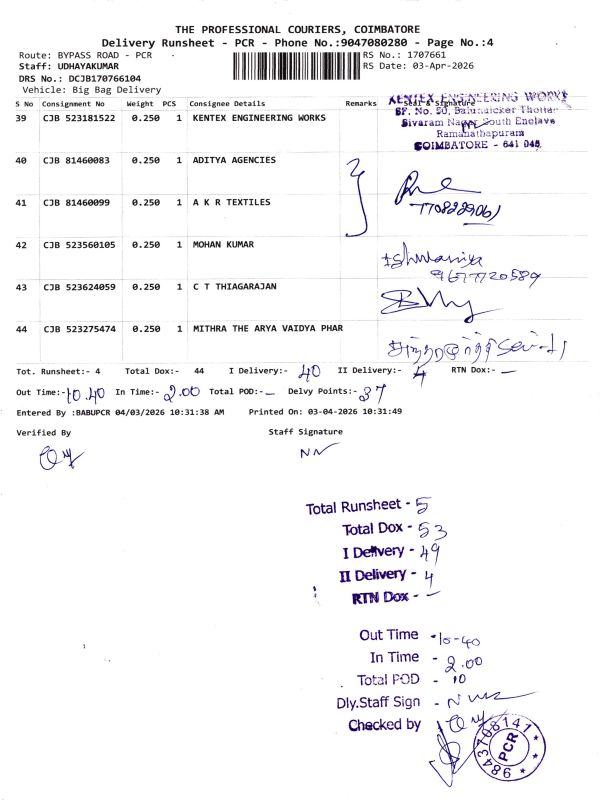 THE PROFESSIONAL COURIERS, COIMBATORE
Delivery Runsheet - PCR - Phone No.:9047080280 - Page No.:4
Route: BYPASS ROAD - PCR RS No.: 1707661
Staff: UDHAYAKUMAR RS Date: 03-Apr-2026
DRS No.: DCJB170766104
Vehicle: Big Bag Delivery
S No Consignment No Weight PCS Consignee Details Remarks Seal & Signature
KENTEX ENGINEERING WORKS
39 CJB 523181522 0.250 1 KENTEX ENGINEERING WORKS
SF. No. 50, Thottam
Sivaram Nagar South Enclave
Ramanathapuram
COIMBATORE - 641 045.
40 CJB 81460083 0.250 1 ADITYA AGENCIES
41 CJB 81460099 0.250 1 A K R TEXTILES
7708229061
42 CJB 523560105 0.250 1 MOHAN KUMAR
9677720589
43 CJB 523624059 0.250 1 C T THIAGARAJAN
44 CJB 523275474 0.250 1 MITHRA THE ARYA VAIDYA PHAR
Tot. Runsheet:- 4 Total Dox:- 44 I Delivery:- 40 II Delivery:- 4 RTN Dox:- —
Out Time:- 10.40 In Time:- 2.00 Total POD:- — Delvy Points:- 37
Entered By :BABUPCR 04/03/2026 10:31:38 AM Printed On: 03-04-2026 10:31:49
Verified By Staff Signature
Total Runsheet - 5
Total Dox - 53
I Delivery - 49
II Delivery - 4
RTN Dox - —
Out Time - 10-40
In Time - 2.00
Total POD - 10
Dly.Staff Sign -
Checked by
9843708147
PCR